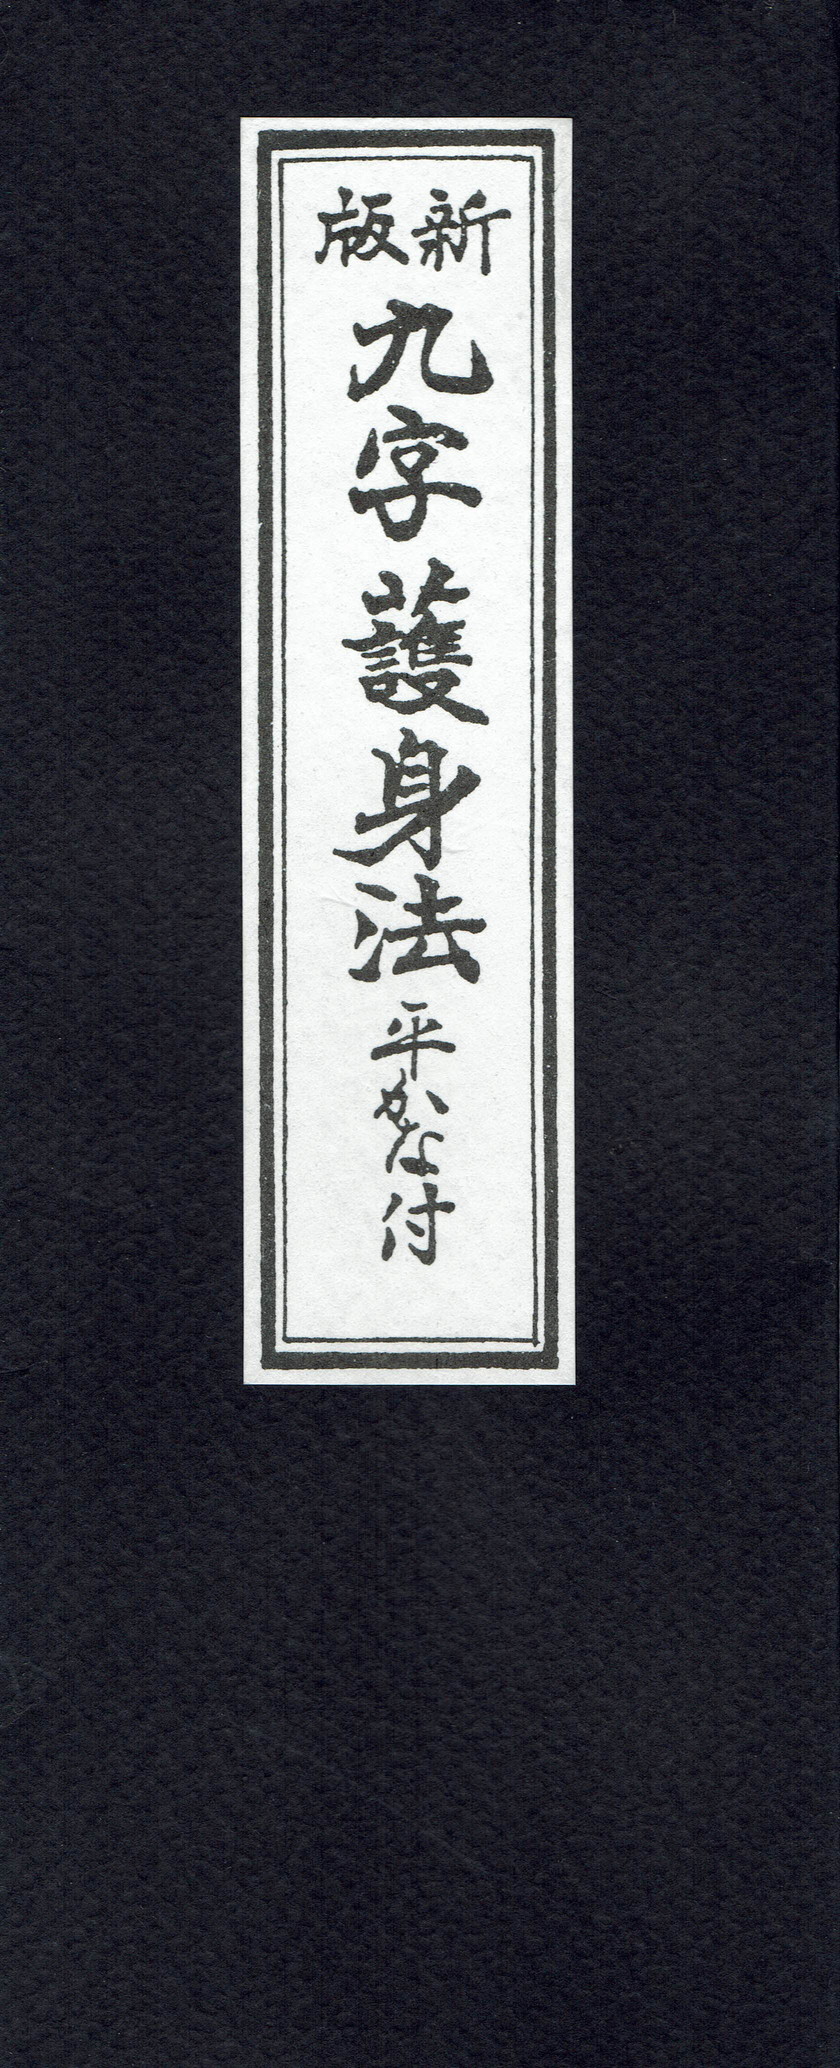 新版
九字護身法平かな付